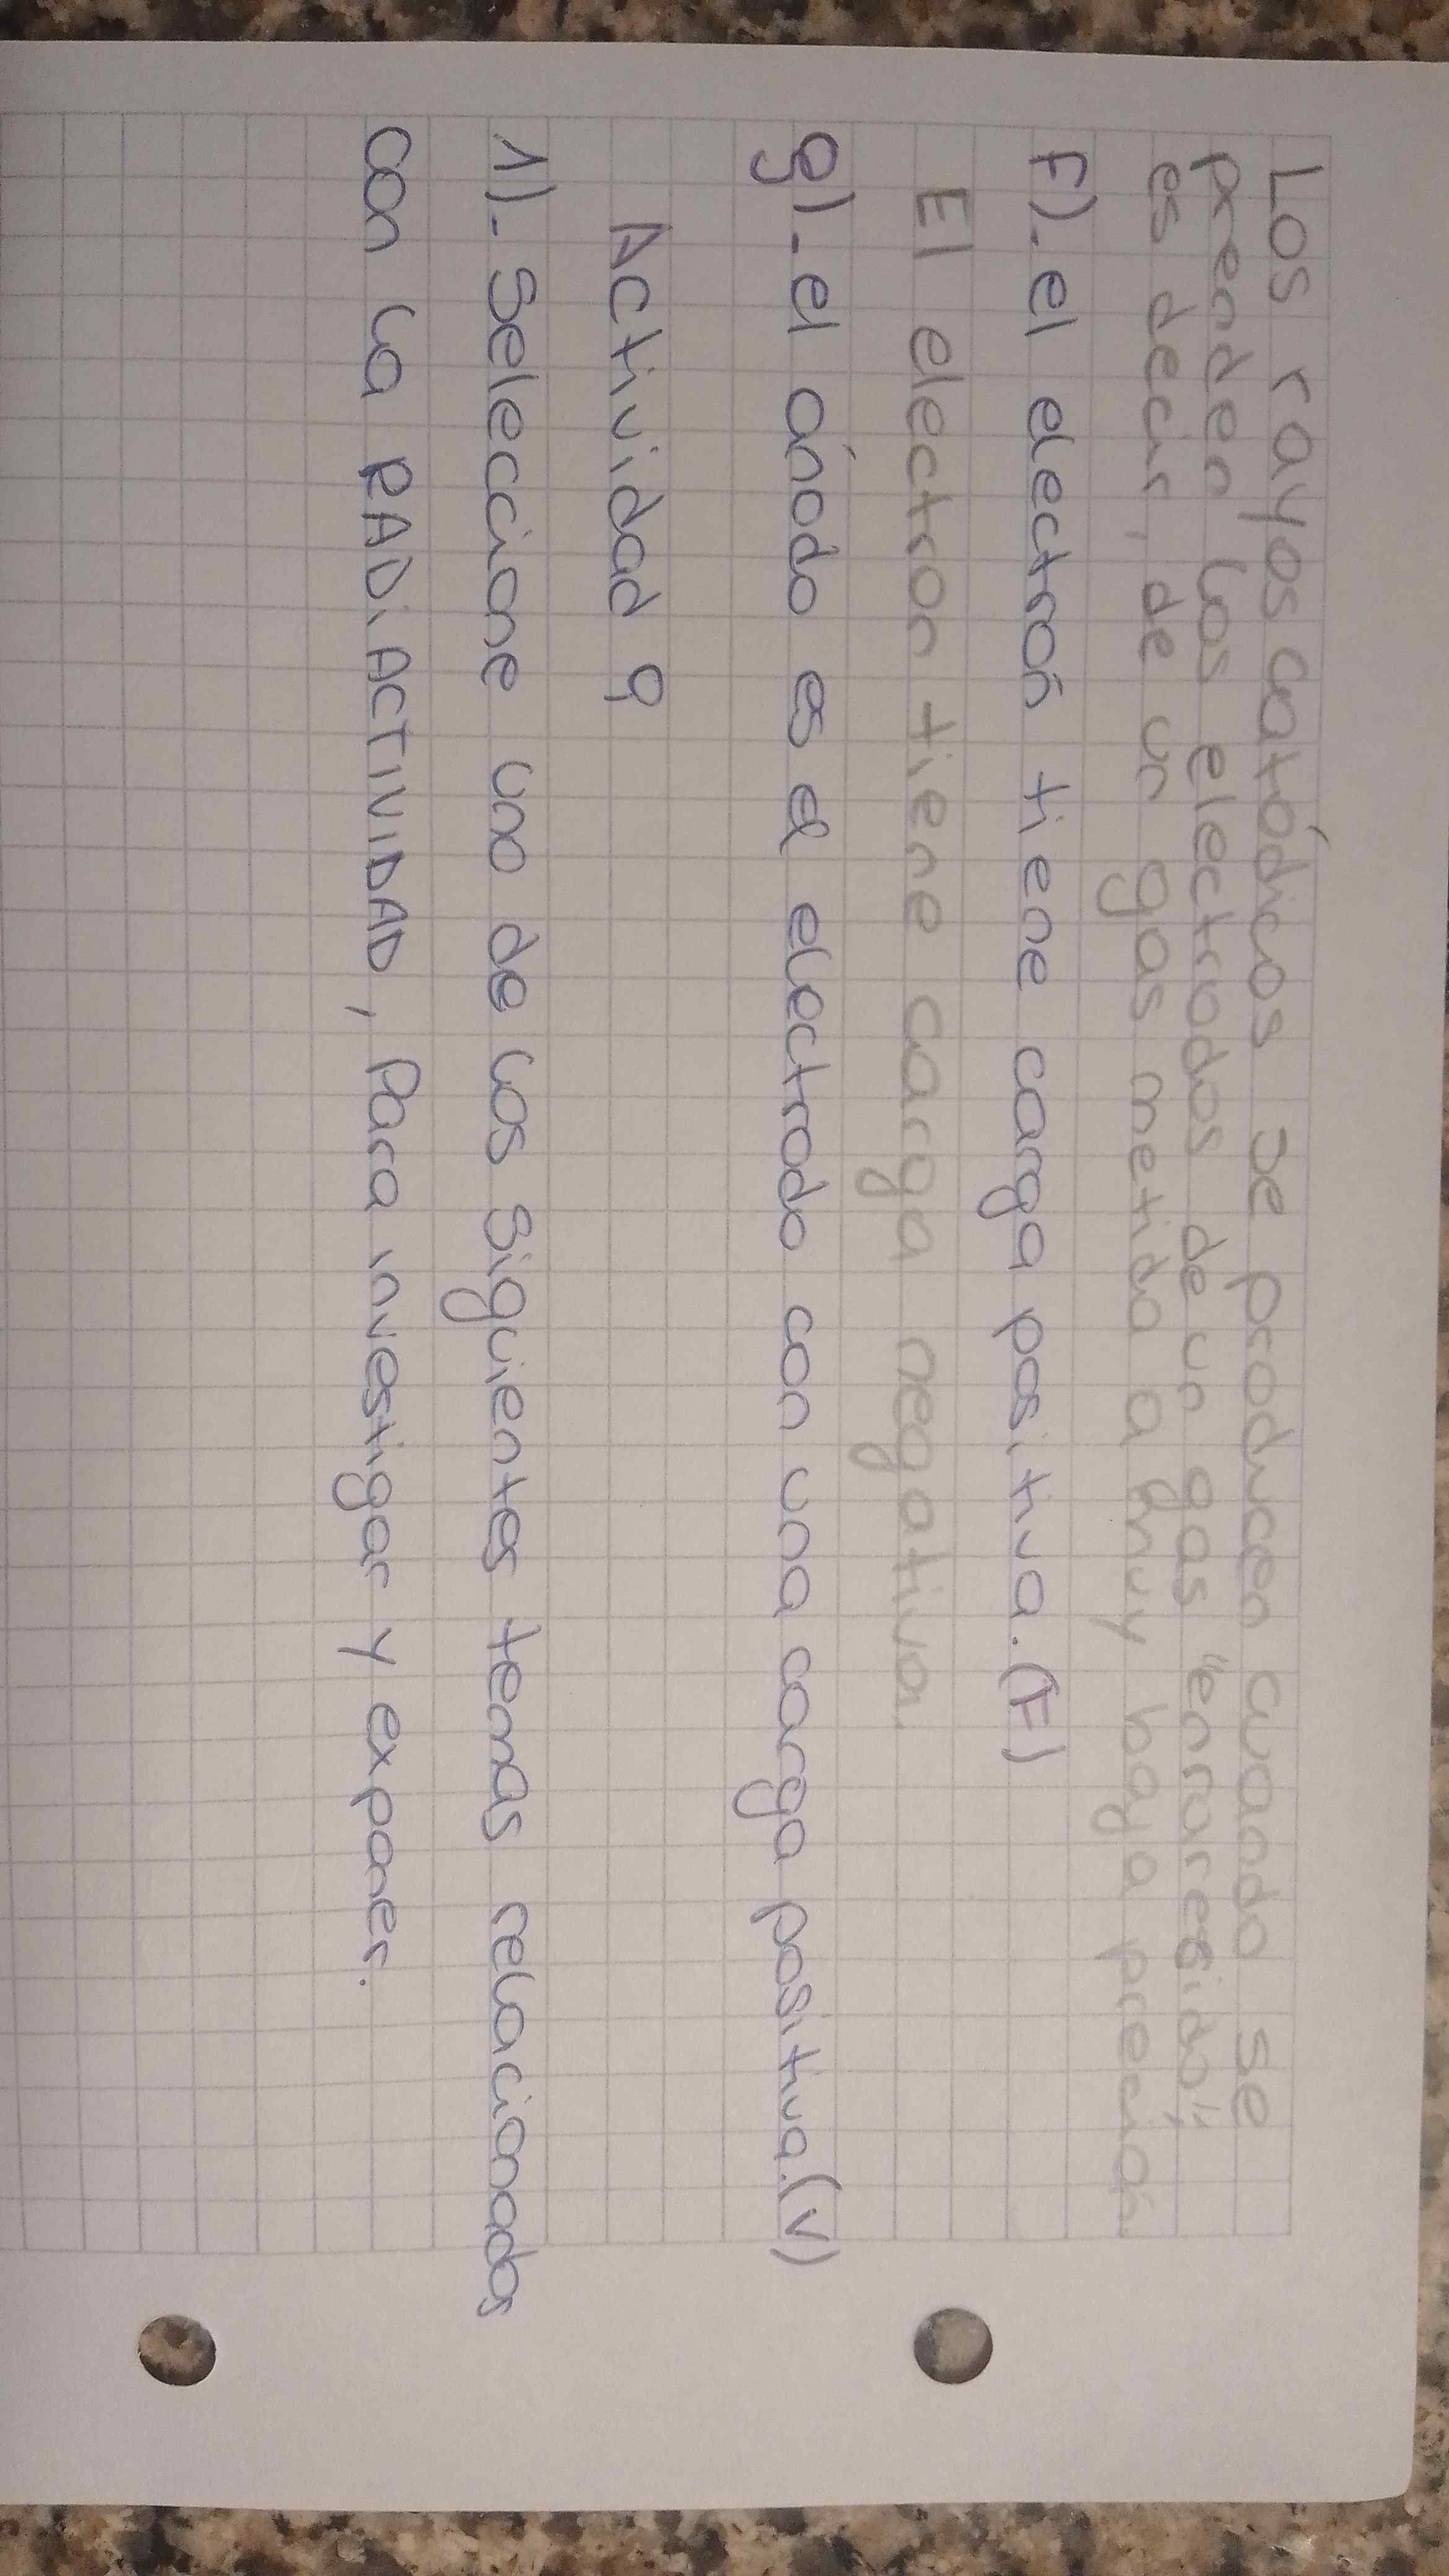 Los rayos catódicos se producen cuando se
prenden los electrodos de un gas "enraresido",
es decir, de un gas metido a muy baja preción.
F).- el electrón tiene carga positiva. (F)
El electron tiene carga negativa.
g).- el ánodo es el electrodo con una carga positiva. (V)
Actividad 9
1).- Seleccione uno de los siguientes temas relacionados
con la RADiACTIVIDAD, Para investigar y exponer.